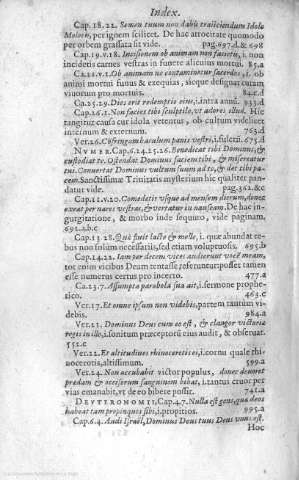 Index.
Cap.18.21. Semen tuum non dabis traijciendum Idolo
Moloch, per ignem scilicet. De hac atrocitate quomodo
per orbem grassata sit vide. pag.697.d.& 698
Cap.19.v.18. Incisionem ob animam non facietis, i. non
incidetis carnes vestras in funere alicuius mortui. 85.a
Ca.21.v.1. Ob animam ne contaminetur sacerdos, i. ob
animi mortui funus & exequias, sicque designat curam
vivorum pro mortuis. d
Ca.25.29. Dies erit redemptio eius, intra anni. 933.d
Cap.26.1. Non facies tibi sculptile, ut adores illud. Hic
tangitur causa cut idola vetentur, ob cultum videlicet
internum & externum. 763.d
Ver.26. Confringam baculum panis vestri, i. fulcri. 675.d
NUMER. Cap.6.24.25.26. Benedicat tibi Dominus, &
custodiat te. Ostendat Dominus faciem tibi, & misereatur
tui. Convertat Dominus vultum suum ad te, & det tibi pacem.
Sanctissimæ Trinitatis mysterium hic qualiter pandatur
vide. pag.362.&c
Cap.11.v.20. Comedetis usque ad mensem dierum, donec
exeat per nares vestras, & vertatur in nauseam. De hac ingurgitatione,
& morbo inde sequuto, vide paginam.
692.a.b.c
Cap.13.28. Quæ fluit lacte & melle, i. quæ abundat rebus
non solum necessariis, sed etiam voluptuosis. 695.b
Cap.14.22. Iam per decem vices audierunt vocē meam,
toc enim vicibus Deum tentasse referuntur: posset tamen
esse numerus certus pro incerto. 477.a
Ca.23.7. Assumpta parabola sua ait, i. sermone prophetico.
463.c
Ver.17. Et omne ipsum non videbis, partem tantum videbis.
984.a
Ver.21. Dominus Deus cum eo est, & clangor victoriæ
regis in illo, i. sonitum præceptorū eius audit, & observat.
551.c
Ver.22. Et altitudines rhinocerotis ei, i. cornu quale rhinocerotis,
altissimum. 599.a
Ver.24. Non accubabit victor populus, donec devoret
prædam & occisorum sanguinem bibat, i. tantus cruor per
vias emanabit, ut de eo bibere possit. 741.a
DEUTERONOMII. Cap.4.7. Nulla est gens, quæ deos
habeat tam propinquos sibi, i. propitios. 995.a
Cap.6.4. Audi Israël, Dominus Deus tuus Deus unus est.
Hoc